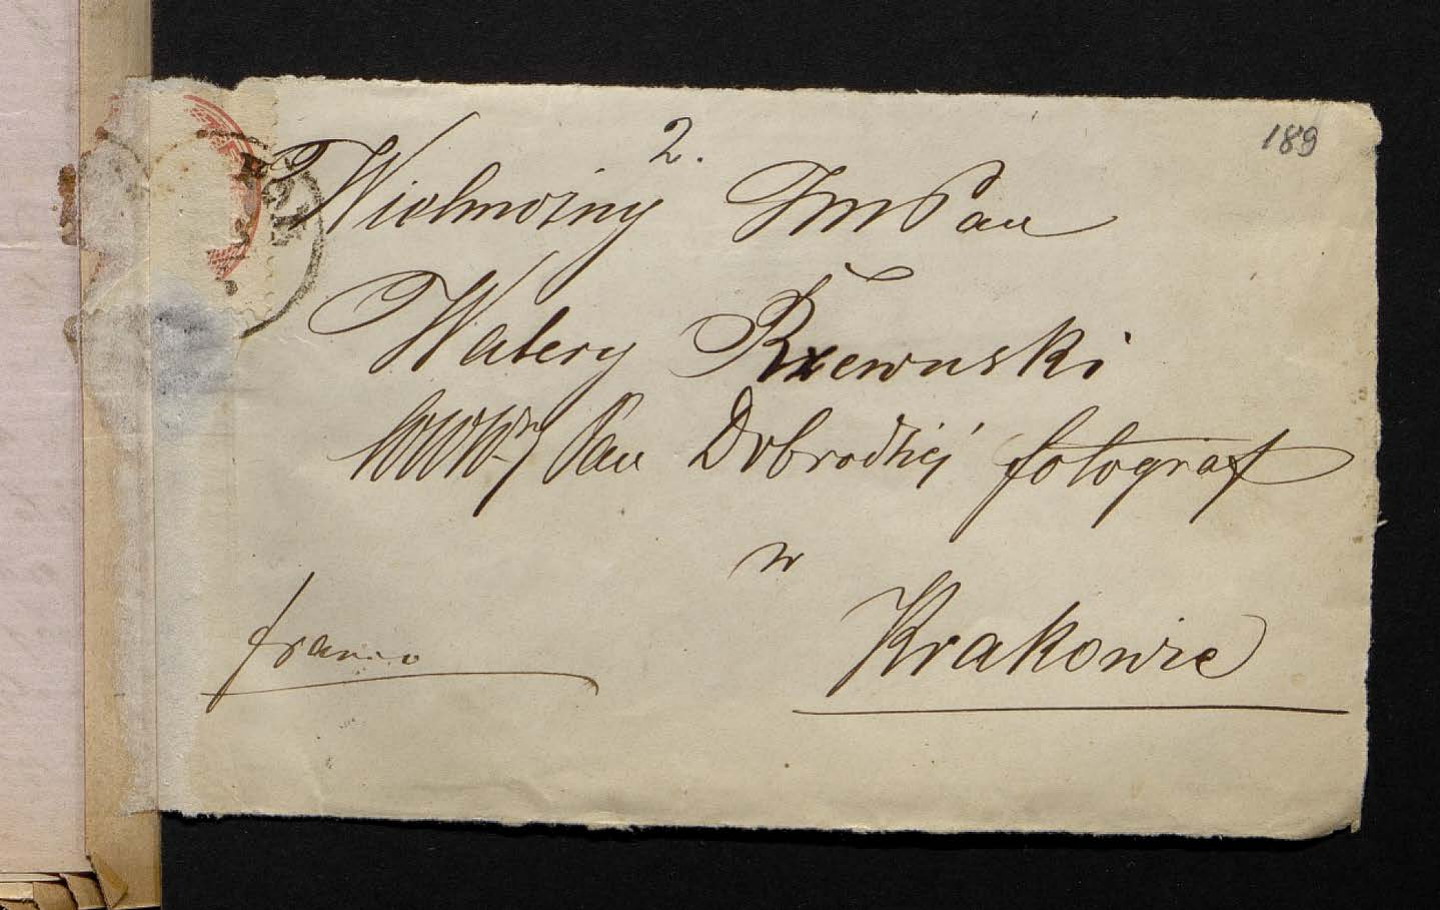 189
2.
Wielmożny JmPan
Walery Rzewuski
WWWny Pan Dobrodziej fotograf
w
Krakowie
franco